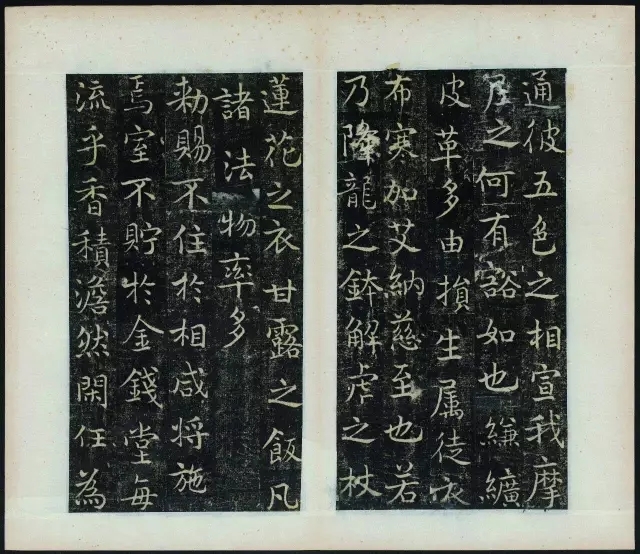 通彼五色之相宣我摩
尼之何有谿如也縑纊
皮革多由損生属徒衣
布寒加艾納慈至也若
乃降龍之鉢解虎之杖
蓮花之衣甘露之飯凡
諸法物率多
勑賜不住於相咸将施
焉室不貯於金錢堂每
流乎香積澹然閑任為